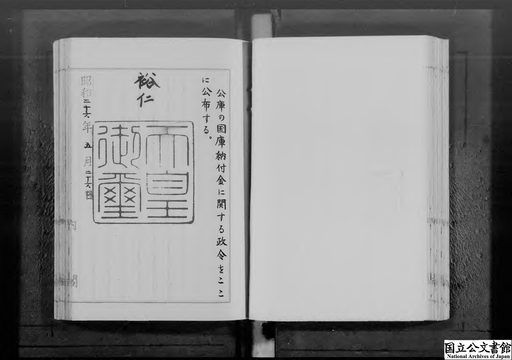 公庫の国庫納付金に関する政令をここ
に公布する。
裕仁
天皇御璽
昭和二十六年五月二十六日
内閣
国立公文書館
National Archives of Japan